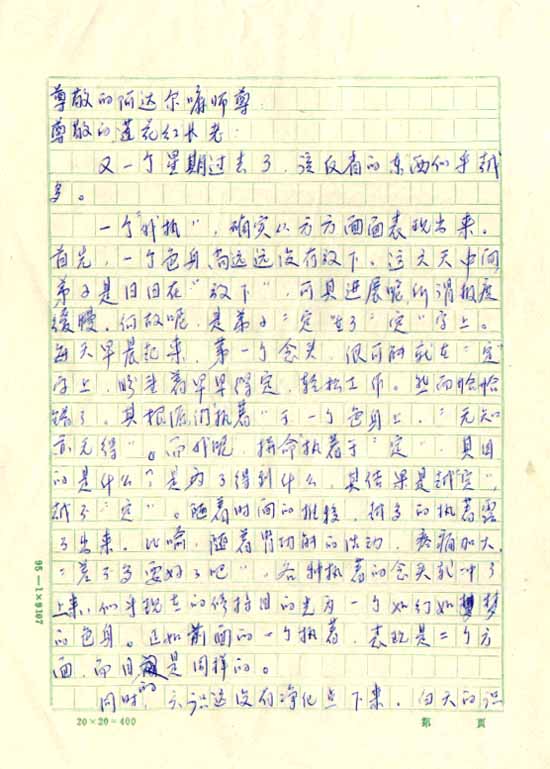 尊敬的阿达尔嘛师尊：
尊敬的莲花红长老：
又一个星期过去了，该反省的东西似乎越
多。
一个“我执”，确实从方方面面表现出来。
首先，一个色身，尚远远没有放下。这六天中间
弟子是日日在“放下”，可其进展呢，所谓极度
缓慢。何故呢，是弟子“定”在了“定”字上。
每天早晨起来，第一个念头，很可能就在“定”
字上，盼望着早早得定，轻松工作。然而恰恰
错了。其根源仍执着“于一个色身上，“无知
亦无得”。而我呢，拼命执着于“定”，其目
的是什么？是为了得到什么，其结果是越“定”，
越不“定”。随着时间的推移，越多的执着露
了出来。比喻，随着 的活动，疼痛加大，
“差不多要好了吧”，各种执着的念头就冲了
上来，似乎现在的修持目的是为一个如幻如梦
的色身。正如前面的一个执着，表现是二个方
面，而目的是同样的。
同时，六识还没有净化下来，白天的识
95—1×9107
20×20=400
第 页